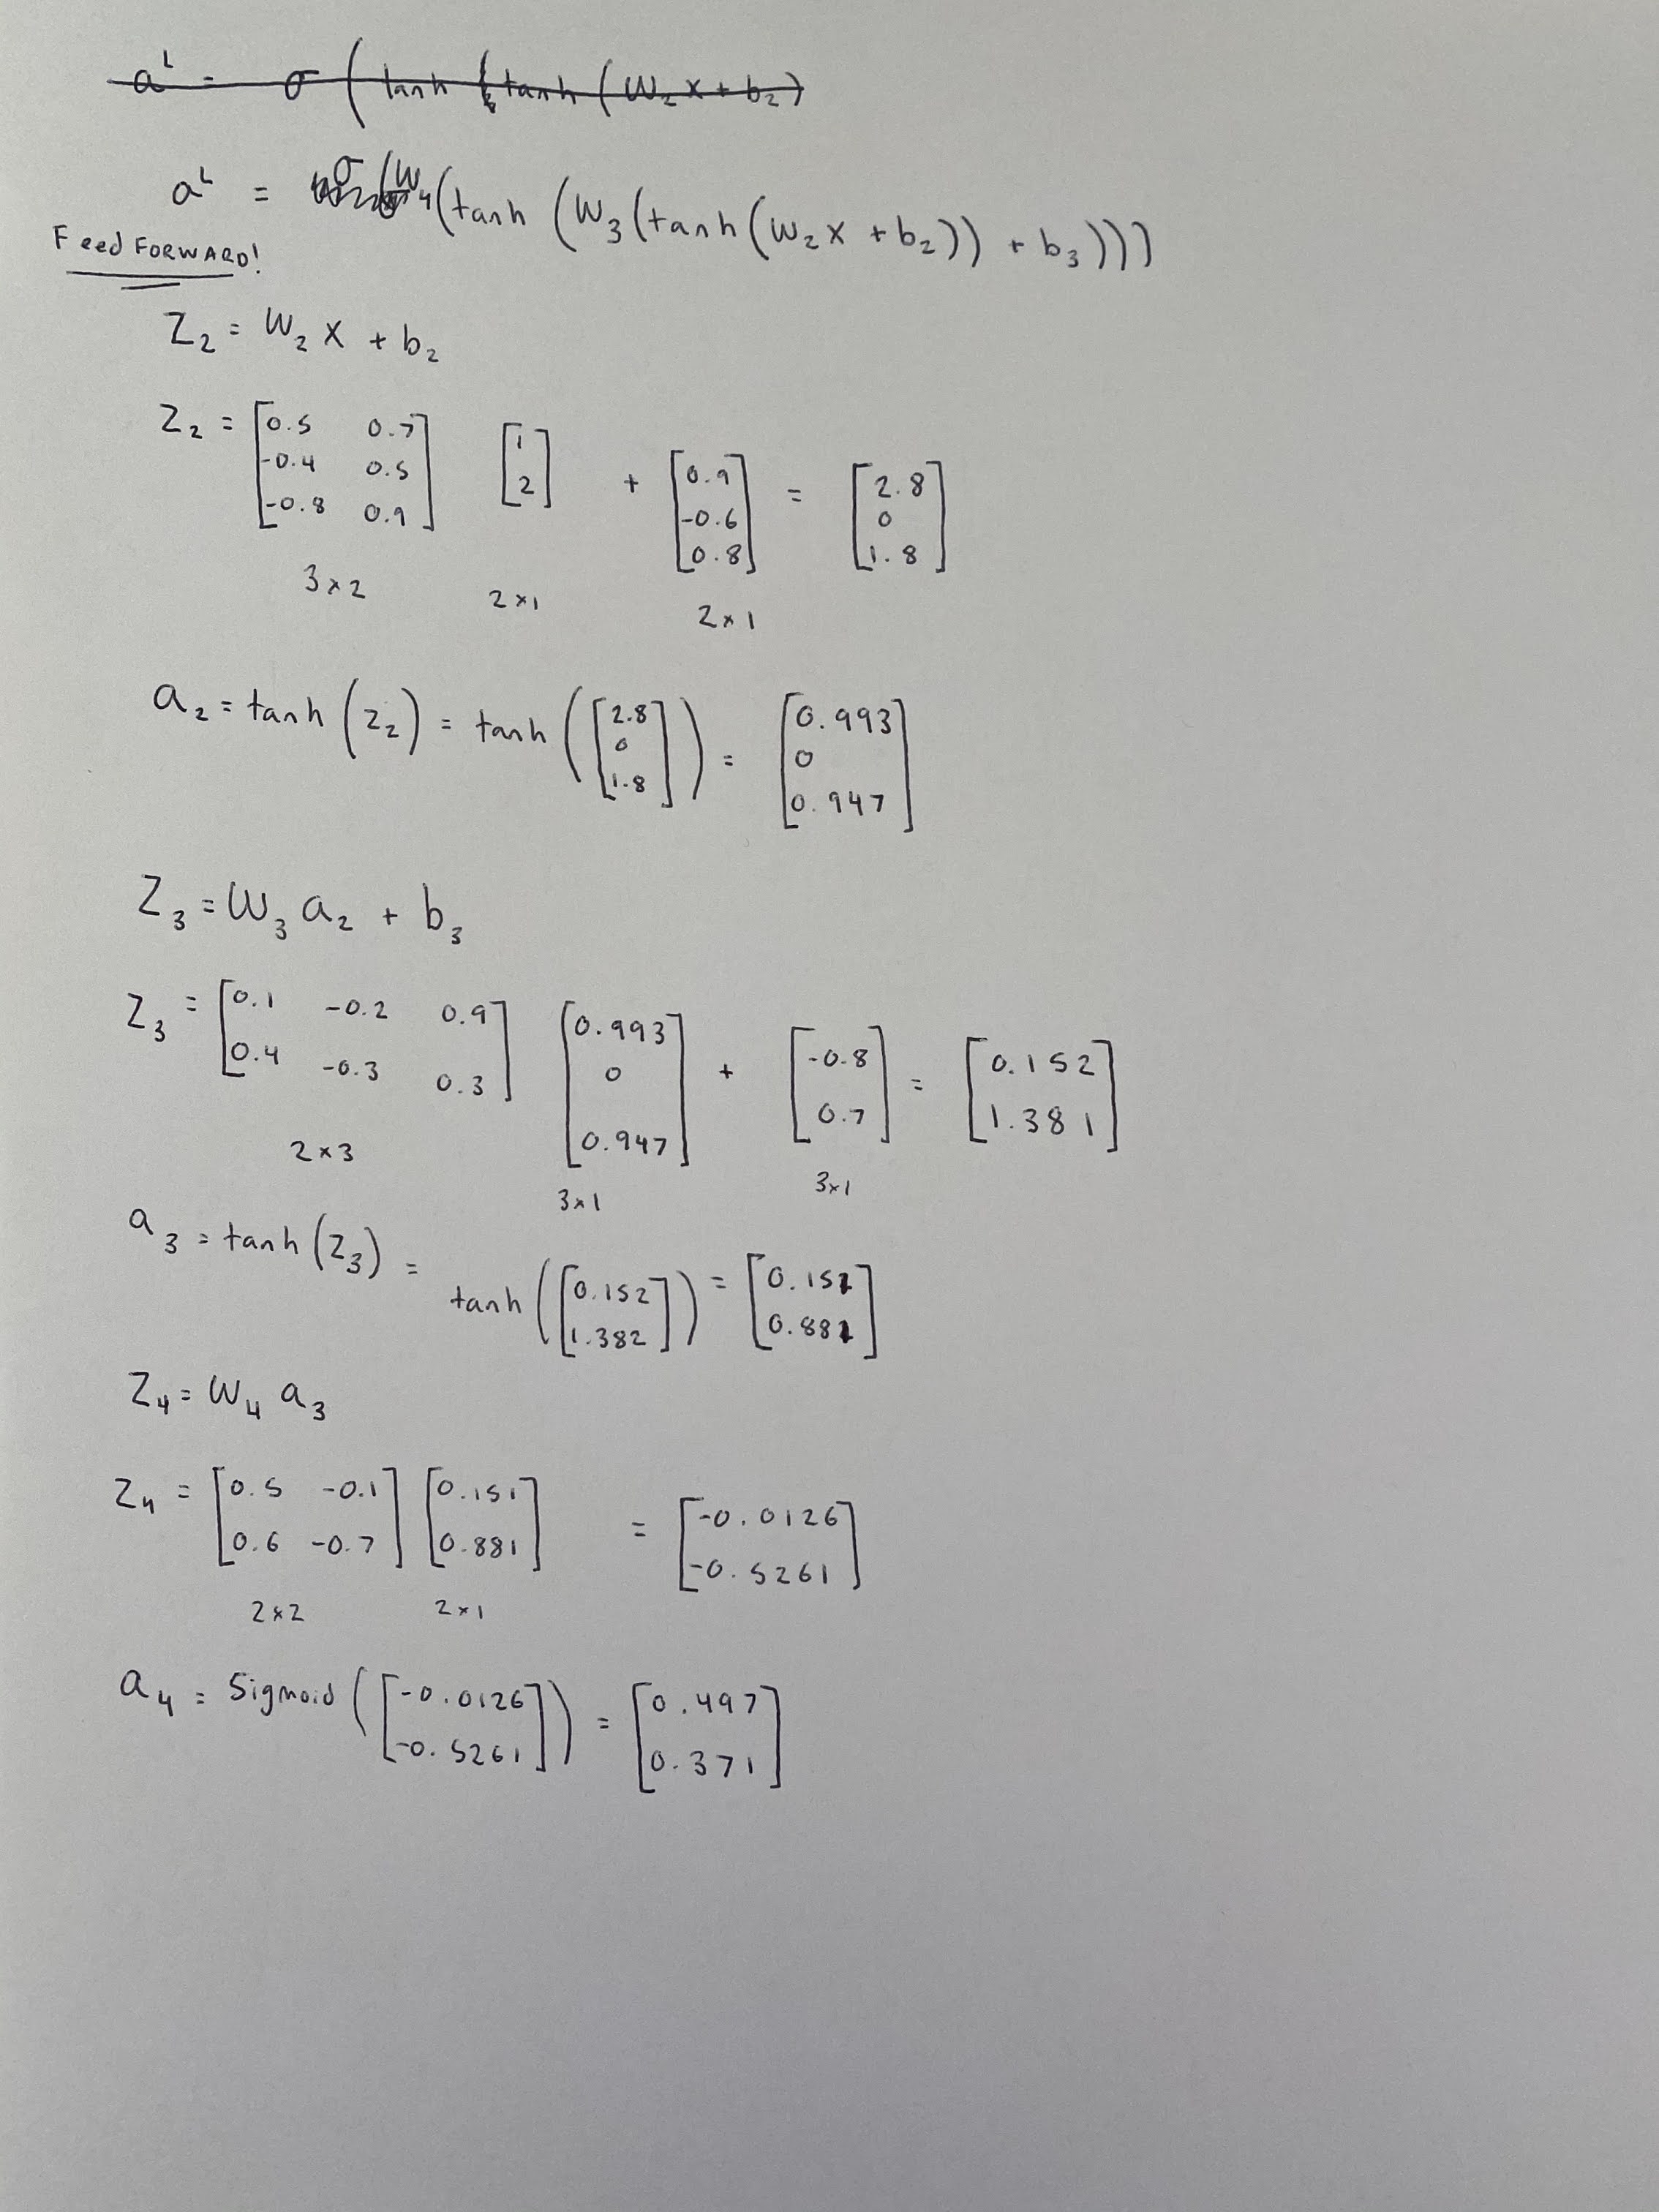 a^L = σ (tanh (tanh (W₂ x + b₂)
a^L = σ (W₄ (tanh (W₃ (tanh (W₂ x + b₂)) + b₃)))
Feed FORWARD!
Z₂ = W₂ x + b₂
Z₂ = [0.5 0.7; -0.4 0.5; -0.8 0.9] [1; 2] + [0.9; -0.6; 0.8] = [2.8; 0; 1.8]
3×2 2×1 2×1
a₂ = tanh (z₂) = tanh ([2.8; 0; 1.8]) = [0.993; 0; 0.947]
Z₃ = W₃ a₂ + b₃
Z₃ = [0.1 -0.2 0.9; 0.4 -0.3 0.3] [0.993; 0; 0.947] + [-0.8; 0.7] = [0.152; 1.381]
2×3 3×1 3×1
a₃ = tanh (Z₃) = tanh ([0.152; 1.382]) = [0.151; 0.881]
Z₄ = W₄ a₃
Z₄ = [0.5 -0.1; 0.6 -0.7] [0.151; 0.881] = [-0.0126; -0.5261]
2×2 2×1
a₄ = Sigmoid ([-0.0126; -0.5261]) = [0.497; 0.371]